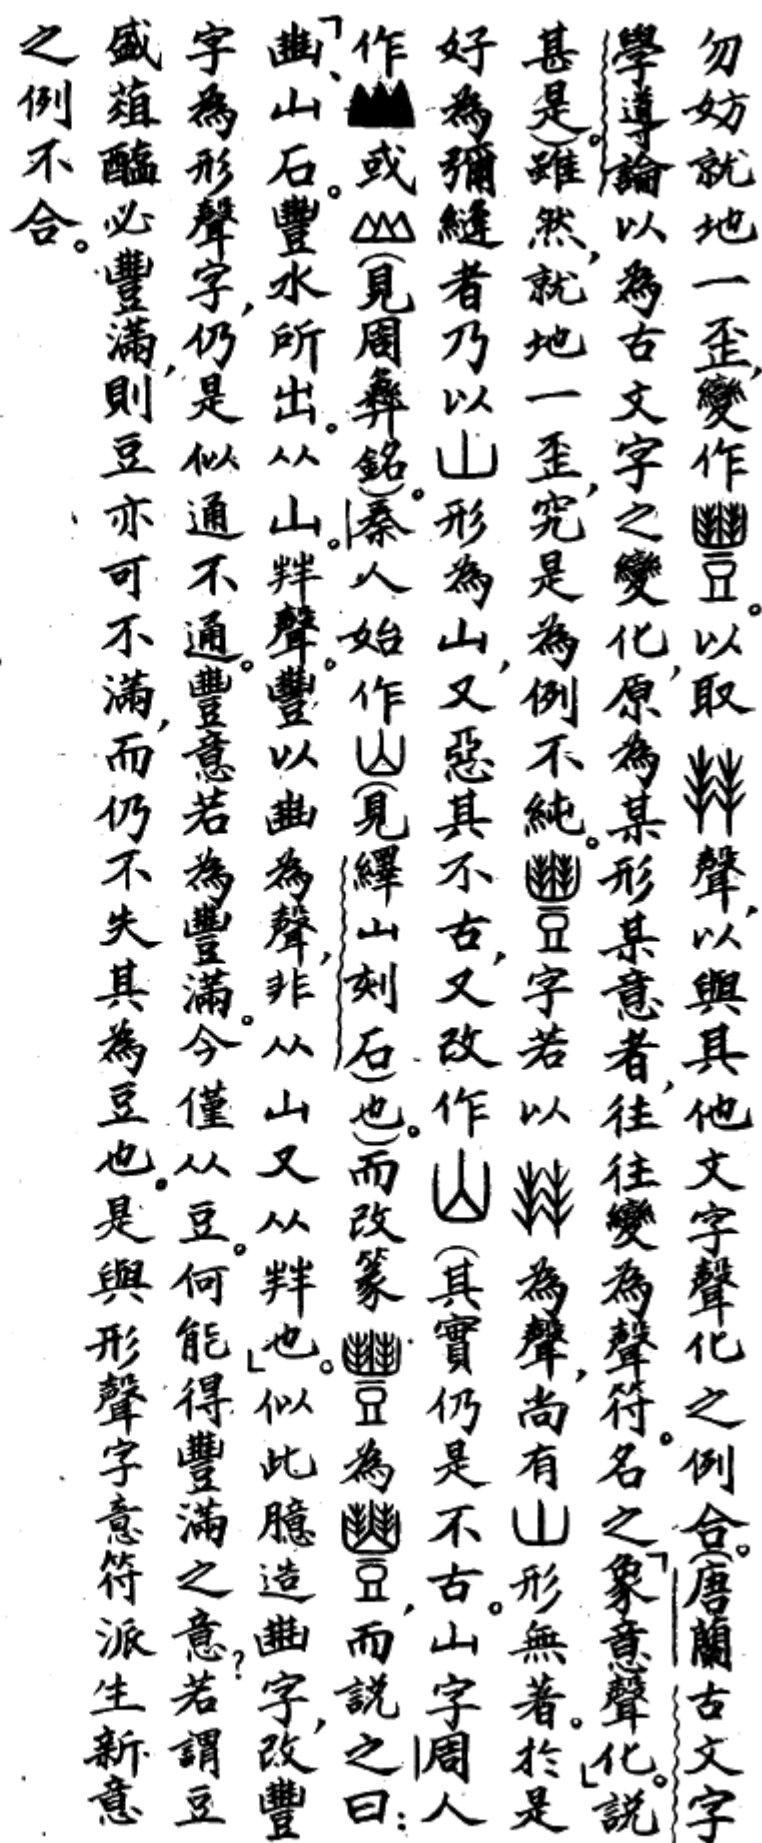 勿妨就地一歪，變作豐。以取聲，以與其他文字聲化之例合。（唐蘭古文字
學導論以為古文字之變化，原為某形某意者，往往變為聲符。名之「象意聲化」。說
甚是）。雖然，就地一歪，究是為例不純。豐字若以為聲，尚有山形無著。於是
好為彌縫者乃以山形為山，又惡其不古，又改作（其實仍是不古。山字周人
作或（見周彝銘）。秦人始作山（見繹山刻石）也）。而改篆為，而說之曰：
「豳、山石。豐水所出。从山。𢆉聲。豐以豳為聲，非从山又从也。」似此臆造字，改豐
字為形聲字，仍是似通不通。豐意若為豐滿。今僅从豆。何能得豐滿之意？若謂豆
盛菹醢必豐滿，則豆亦可不滿，而仍不失其為豆也。是與形聲字意符派生新意
之例不合。